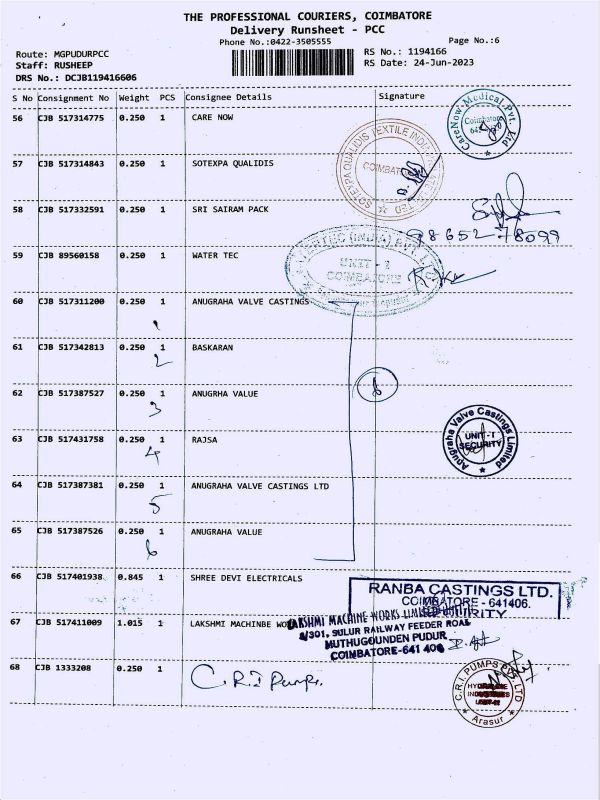 THE PROFESSIONAL COURIERS, COIMBATORE
Delivery Runsheet - PCC
Phone No.:0422-3505555
Page No.:6
Route: MGPUDURPCC
Staff: RUSHEEP
DRS No.: DCJB119416606
RS No.: 1194166
RS Date: 24-Jun-2023
S No Consignment No Weight PCS Consignee Details Signature
56 CJB 517314775 0.250 1 CARE NOW
CareNow Medical Pvt. Ltd
Coimbatore
57 CJB 517314843 0.250 1 SOTEXPA QUALIDIS
SOTEXPA QUALIDIS TEXTILE INDIA PRIVATE LIMITED
COIMBATORE
58 CJB 517332591 0.250 1 SRI SAIRAM PACK
98652 78099
59 CJB 89560158 0.250 1 WATER TEC
WATERTEC (INDIA) PVT. LTD.
UNIT - I
COIMBATORE
60 CJB 517311200 0.250 1 ANUGRAHA VALVE CASTINGS
1
61 CJB 517342813 0.250 1 BASKARAN
2
62 CJB 517387527 0.250 1 ANUGRHA VALUE
3
6
63 CJB 517431758 0.250 1 RAJSA
4
Anugraha Valve Castings Limited
UNIT - I
SECURITY
64 CJB 517387381 0.250 1 ANUGRAHA VALVE CASTINGS LTD
5
65 CJB 517387526 0.250 1 ANUGRAHA VALUE
6
66 CJB 517401938 0.845 1 SHREE DEVI ELECTRICALS
RANBA CASTINGS LTD.
COIMBATORE - 641406.
SECURITY
67 CJB 517411009 1.015 1 LAKSHMI MACHINBE WO
LAKSHMI MACHINE WORKS LIMITED
SULUR RAILWAY FEEDER ROAD
MUTHUGOUNDEN PUDUR
COIMBATORE-641 406
68 CJB 1333208 0.250 1 C.R.I Pumps.
C.R.I. PUMPS PVT. LTD
Arasur